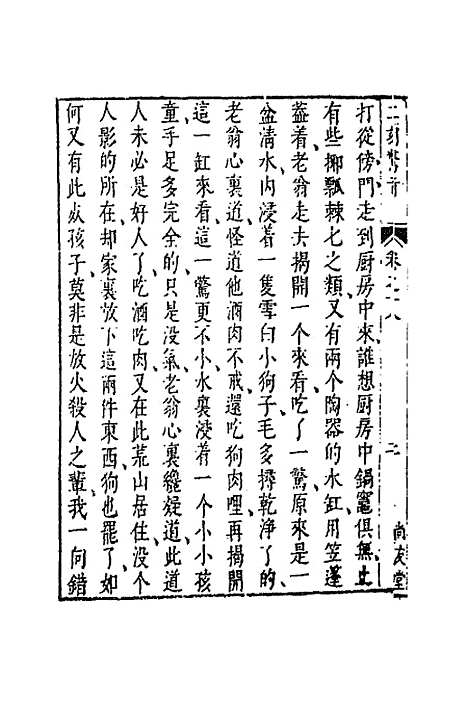 二刻驚奇 卷之十八 三 尚友堂
打從傍門走到厨房中來誰想厨房中鍋竈俱無止
有些椰瓢棘匕之類又有兩個陶器的水缸用笠蓬
蓋着老翁走去揭開一個來看吃了一驚原來是一
盆清水内浸着一隻雪白小狗子毛多撏乾淨了的
老翁心裏道怪道他酒肉不戒還吃狗肉哩再揭開
這一缸來看這一驚更不小水裏浸着一個小小孩
童手足多完全的只是没氣老翁心裏纔疑道此道
人未必是好人了吃酒吃肉又在此荒山居住没个
人影的所在却家裏放下這兩件東西狗也罷了如
何又有此歨孩子莫非是放火殺人之輩我一向錯